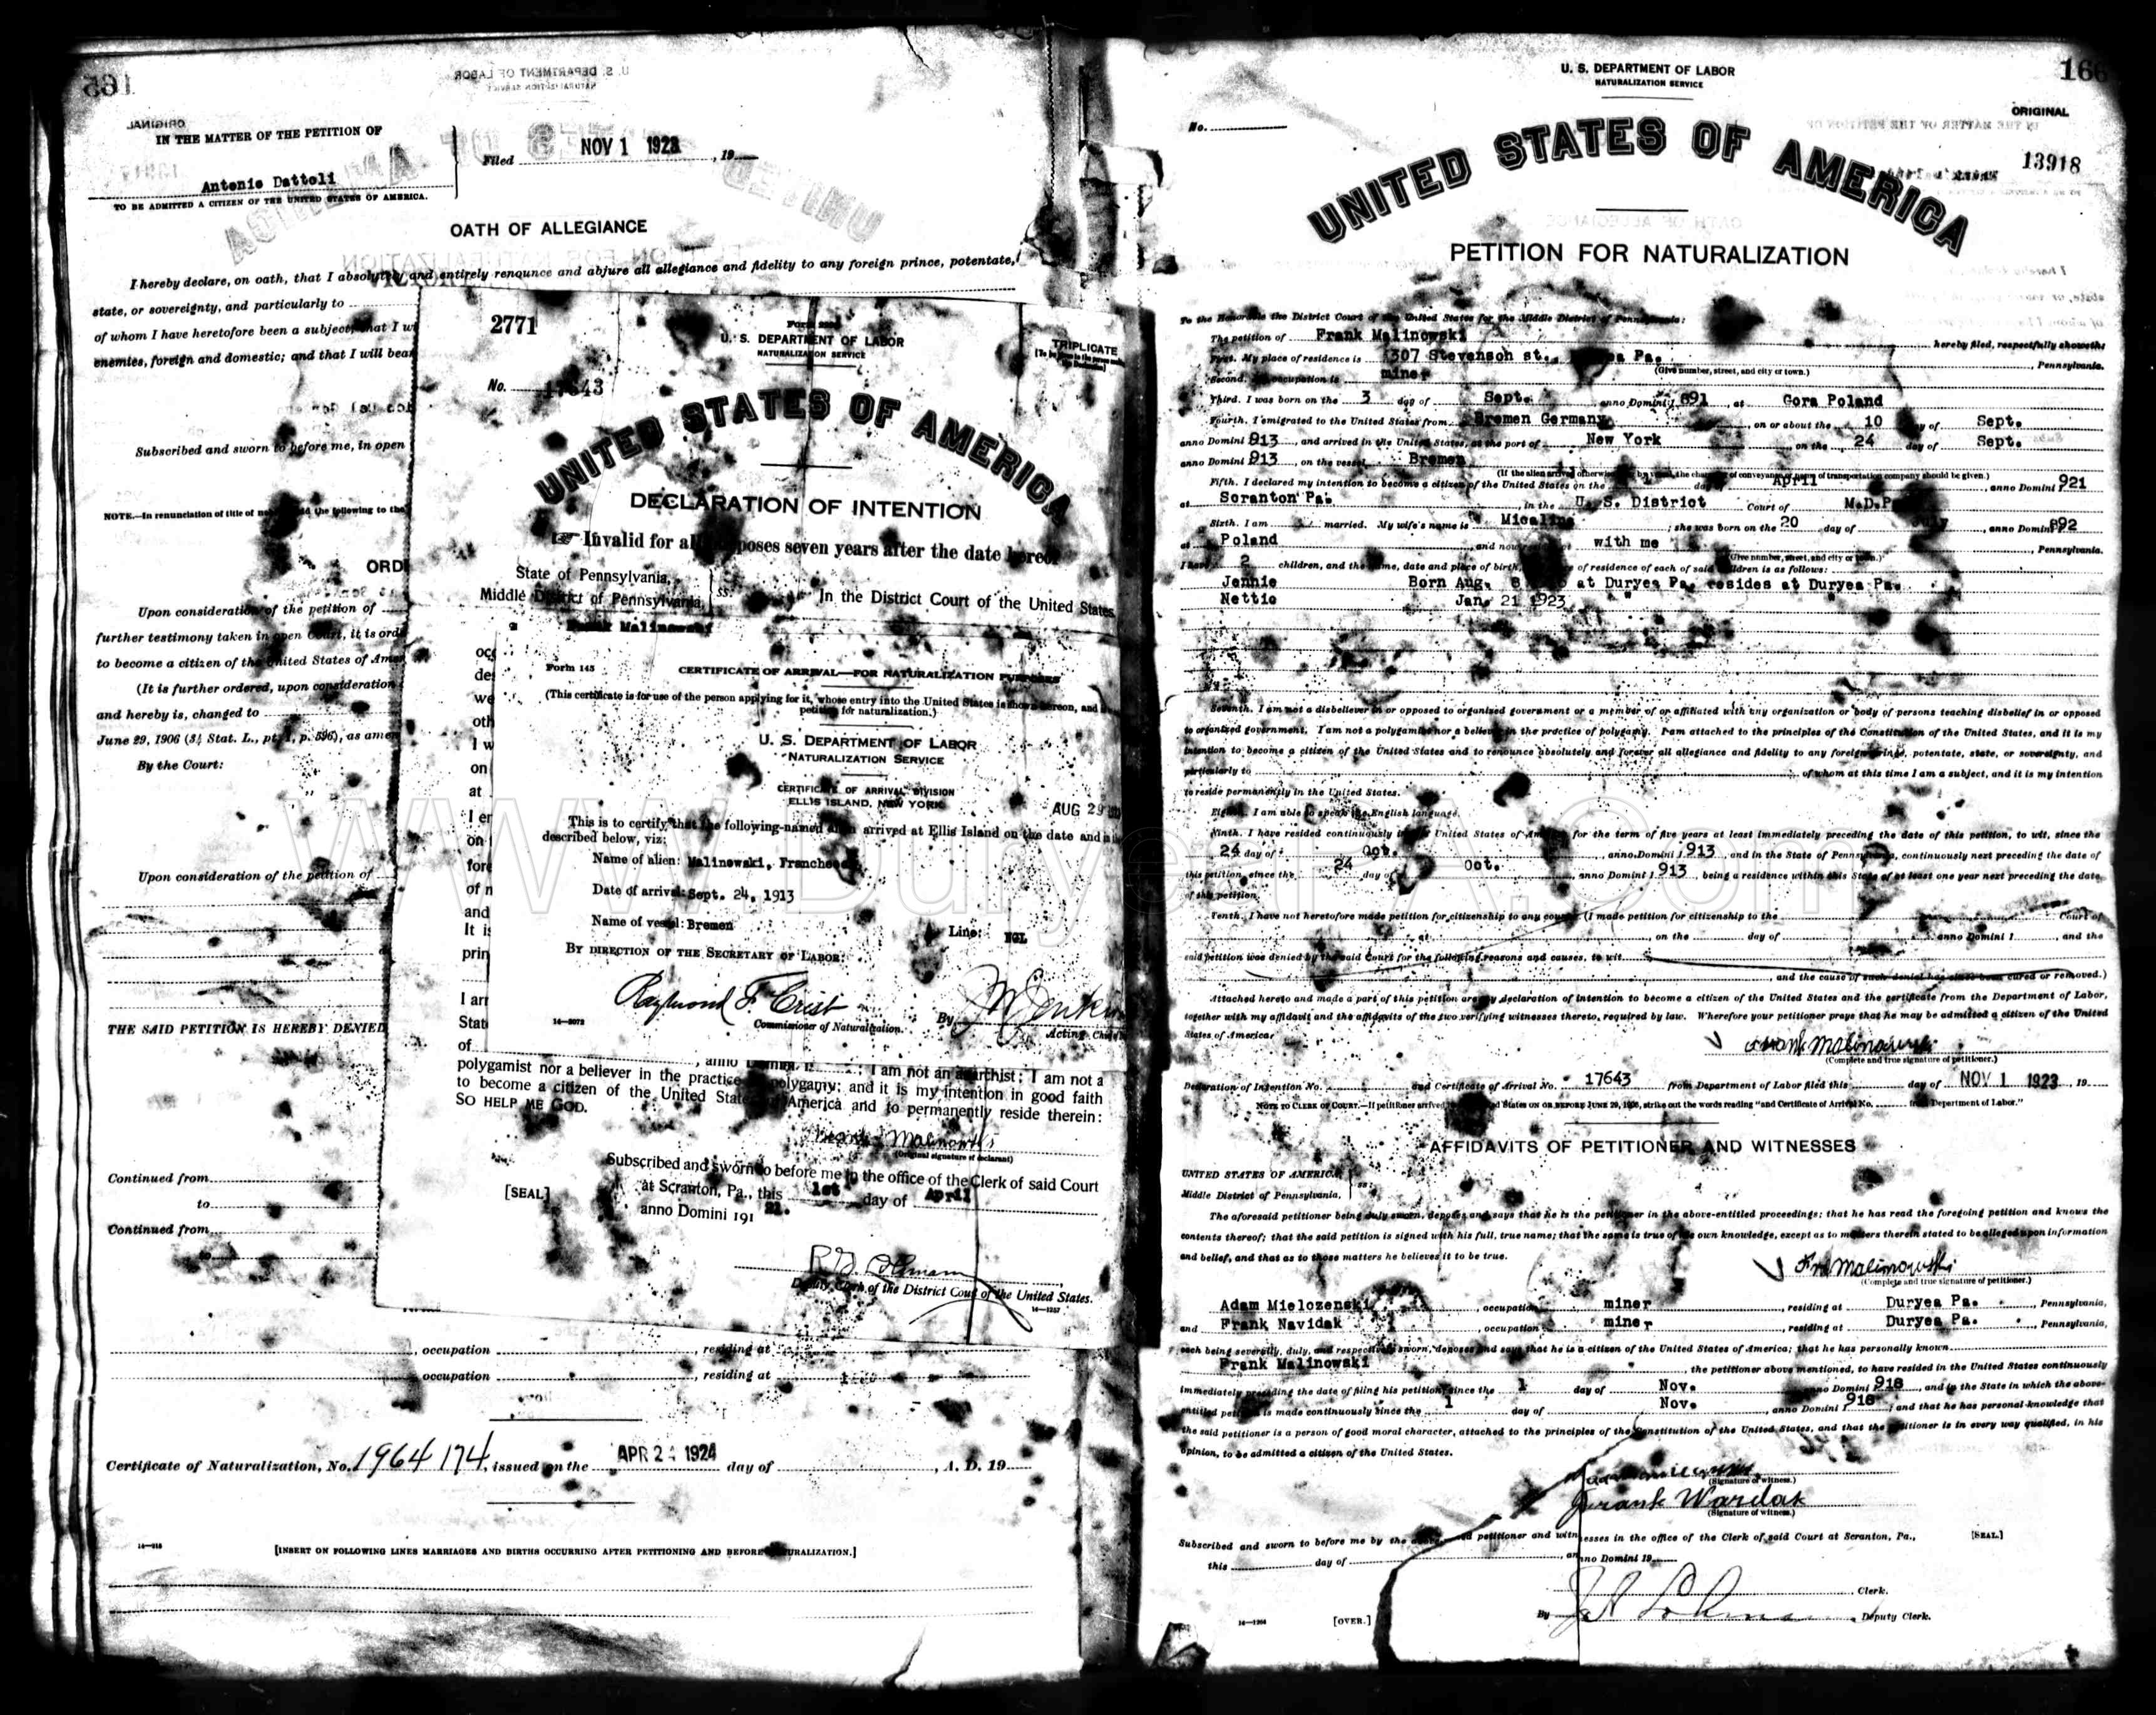 165
U. S. DEPARTMENT OF LABOR
NATURALIZATION SERVICE
ORIGINAL
IN THE MATTER OF THE PETITION OF
Antonio Dattoli
TO BE ADMITTED A CITIZEN OF THE UNITED STATES OF AMERICA.
Filed NOV 1 1923, 19
OATH OF ALLEGIANCE
I hereby declare, on oath, that I absolutely and entirely renounce and abjure all allegiance and fidelity to any foreign prince, potentate,
state, or sovereignty, and particularly to
of whom I have heretofore been a subject; that I w
enemies, foreign and domestic; and that I will bear
Subscribed and sworn to before me, in open
NOTE.—In renunciation of title of the following to the
ORD
Upon consideration of the petition of
further testimony taken in open Court, it is ord
to become a citizen of the United States of Ame
(It is further ordered, upon consideration
and hereby is, changed to
June 29, 1906 (34 Stat. L., pt. 1, p. 596), as amen
By the Court:
Upon consideration of the petition of
THE SAID PETITION IS HEREBY DENIED
Continued from
to
Continued from
to
, occupation , residing at
, occupation , residing at
Certificate of Naturalization, No. 1964174, issued on the APR 24 1924 day of , A. D. 19
[INSERT ON FOLLOWING LINES MARRIAGES AND BIRTHS OCCURRING AFTER PETITIONING AND BEFORE NATURALIZATION.]
2771
U. S. DEPARTMENT OF LABOR
NATURALIZATION SERVICE
TRIPLICATE
No. 17643
UNITED STATES OF AMERICA
DECLARATION OF INTENTION
☞ Invalid for all purposes seven years after the date hereof
State of Pennsylvania,
Middle District of Pennsylvania, ss: In the District Court of the United States
Frank Malinowski
Form 145
CERTIFICATE OF ARRIVAL—FOR NATURALIZATION PURPOSES
(This certificate is for use of the person applying for it, whose entry into the United States is shown hereon, and
petition for naturalization.)
U. S. DEPARTMENT OF LABOR
NATURALIZATION SERVICE
CERTIFICATE OF ARRIVAL DIVISION
ELLIS ISLAND, NEW YORK
AUG 29
This is to certify that the following-named alien arrived at Ellis Island on the date and in
described below, viz:
Name of alien: Malinowski, Franche
Date of arrival: Sept. 24, 1913
Name of vessel: Bremen Line: NGL
BY DIRECTION OF THE SECRETARY OF LABOR:
Raymond F. Crist
Commissioner of Naturalization. By Acting Chief
polygamist nor a believer in the practice of polygamy; and it is my intention in good faith
, anno Domini 1 ; I am not an anarchist; I am not a
to become a citizen of the United States of America and to permanently reside therein:
SO HELP ME GOD.
Frank Malinowski
(Original signature of declarant)
Subscribed and sworn to before me in the office of the Clerk of said Court
[SEAL] at Scranton, Pa., this 1st day of April
anno Domini 191 21.
Deputy Clerk of the District Court of the United States.
166
U. S. DEPARTMENT OF LABOR
NATURALIZATION SERVICE
ORIGINAL
No.
13918
UNITED STATES OF AMERICA
PETITION FOR NATURALIZATION
To the Honorable the District Court of the United States for the Middle District of Pennsylvania:
The petition of Frank Malinowski hereby filed, respectfully showeth:
First. My place of residence is 307 Stevenson st., Duryea Pa. , Pennsylvania.
(Give number, street, and city or town.)
Second. My occupation is miner
Third. I was born on the 3 day of Sept. anno Domini 1 891, at Gora Poland
Fourth. I emigrated to the United States from Bremen Germany, on or about the 10 day of Sept.
anno Domini 1 913, and arrived in the United States, at the port of New York, on the 24 day of Sept.
anno Domini 1 913, on the vessel Bremen
(If the alien arrived otherwise than by vessel, the character of conveyance or name of transportation company should be given.)
Fifth. I declared my intention to become a citizen of the United States on the day of April, anno Domini 1 921
at Scranton Pa. , in the U. S. District Court of M.D.P
Sixth. I am married. My wife's name is ; she was born on the 20 day of July, anno Domini 1 892
at Poland , and now resides with me , Pennsylvania.
(Give number, street, and city or town.)
I have 2 children, and the name, date and place of birth, and place of residence of each of said children is as follows:
Jennie Born Aug. at Duryea Pa. resides at Duryea Pa.
Nettie Jan. 21 1923 " "
Seventh. I am not a disbeliever in or opposed to organized government or a member of or affiliated with any organization or body of persons teaching disbelief in or opposed
to organized government. I am not a polygamist nor a believer in the practice of polygamy. I am attached to the principles of the Constitution of the United States, and it is my
intention to become a citizen of the United States and to renounce absolutely and forever all allegiance and fidelity to any foreign prince, potentate, state, or sovereignty, and
particularly to of whom at this time I am a subject, and it is my intention
to reside permanently in the United States.
Eighth. I am able to speak the English language.
Ninth. I have resided continuously in the United States of America for the term of five years at least immediately preceding the date of this petition, to wit, since the
24 day of Oct. , anno Domini 1 913, and in the State of Pennsylvania, continuously next preceding the date of
this petition, since the 24 day of Oct. anno Domini 1 913, being a residence within this State of at least one year next preceding the date
of this petition.
Tenth. I have not heretofore made petition for citizenship to any court. (I made petition for citizenship to the Court of
at , on the day of anno Domini 1 , and the
said petition was denied by the said Court for the following reasons and causes, to wit
, and the cause of such denial has since been cured or removed.)
Attached hereto and made a part of this petition are my declaration of intention to become a citizen of the United States and the certificate from the Department of Labor,
together with my affidavit and the affidavits of the two verifying witnesses thereto, required by law. Wherefore your petitioner prays that he may be admitted a citizen of the United
States of America.
Frank Malinowski
(Complete and true signature of petitioner.)
Declaration of Intention No. and Certificate of Arrival No. 17643 from Department of Labor filed this day of NOV 1 1923, 19
NOTE TO CLERK OF COURT.—If petitioner arrived in the United States ON OR BEFORE JUNE 29, 1906, strike out the words reading "and Certificate of Arrival No. from Department of Labor."
AFFIDAVITS OF PETITIONER AND WITNESSES
UNITED STATES OF AMERICA
Middle District of Pennsylvania, ss:
The aforesaid petitioner being duly sworn, deposes and says that he is the petitioner in the above-entitled proceedings; that he has read the foregoing petition and knows the
contents thereof; that the said petition is signed with his full, true name; that the same is true of his own knowledge, except as to matters therein stated to be alleged upon information
and belief, and that as to those matters he believes it to be true.
Malinowski
(Complete and true signature of petitioner.)
Adam Mielozenski, occupation miner, residing at Duryea Pa. , Pennsylvania,
and Frank Navidak, occupation miner, residing at Duryea Pa. , Pennsylvania,
each being severally, duly, and respectively sworn, deposes and says that he is a citizen of the United States of America; that he has personally known
Frank Malinowski the petitioner above mentioned, to have resided in the United States continuously
immediately preceding the date of filing his petition, since the 1 day of Nov. anno Domini 1 918, and in the State in which the above-
entitled petition is made continuously since the 1 day of Nov. , anno Domini 1 918; and that he has personal knowledge that
the said petitioner is a person of good moral character, attached to the principles of the Constitution of the United States, and that the petitioner is in every way qualified, in his
opinion, to be admitted a citizen of the United States.
(Signature of witness.)
Frank Wardak
(Signature of witness.)
Subscribed and sworn to before me by the petitioner and witnesses in the office of the Clerk of said Court at Scranton, Pa., [SEAL.]
this day of anno Domini 19
Clerk.
By Deputy Clerk.
[OVER.]
www.DuryeaPA.Com